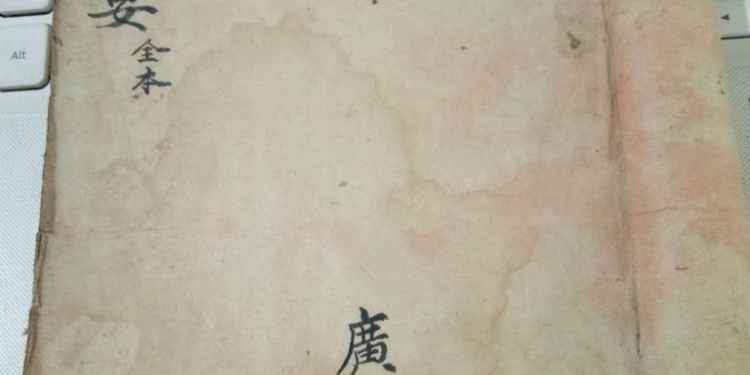 安全本
廣
Alt